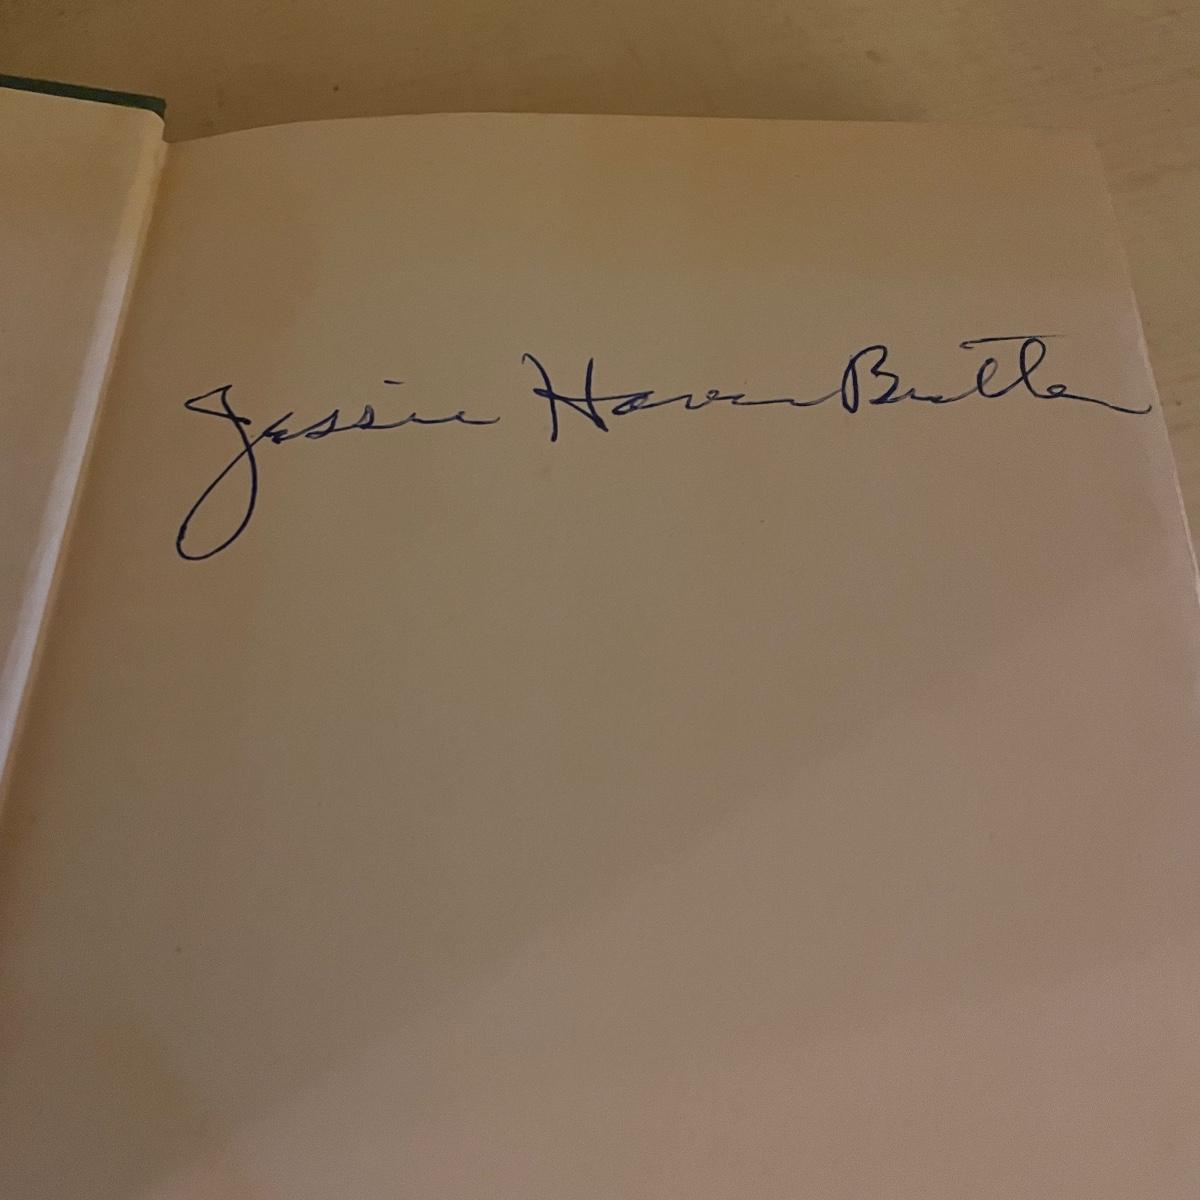 Jessie Haven Butler